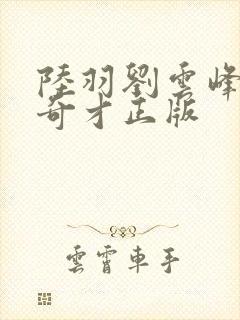 陸羽劉雲峰
奇才正版
雲霄車手